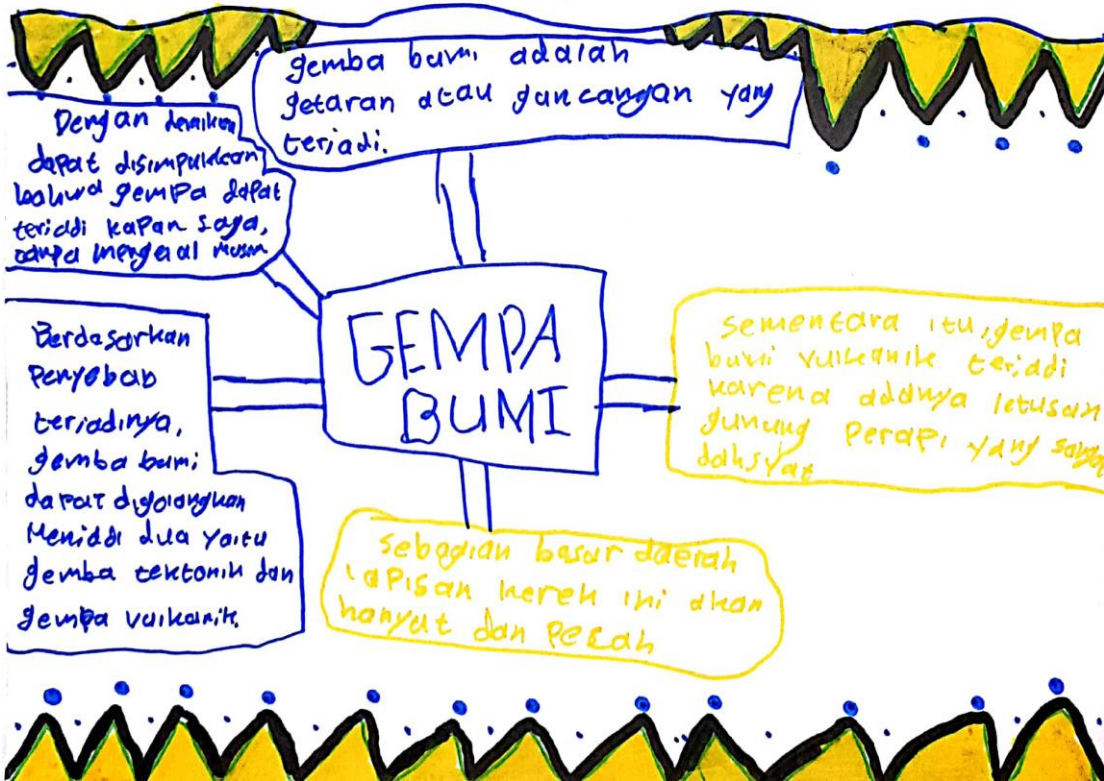 gemba bumi adalah
getaran atau guncangan yang
terjadi.
Dengan demikian
dapat disimpulkan
bahwa gempa dapat
terjadi kapan saja,
tanpa mengenal musim
GEMPA
BUMI
Berdasarkan
Penyebab
terjadinya,
gemba bumi
dapat digolangkan
Menjadi dua yaitu
gemba tektonik dan
gempa vulkanik.
sementara itu, gempa
bumi vulkanik terjadi
karena adanya letusan
gunung Perapi yang sangat
dahsyat
sebagian besar daerah
lapisan kerek ini akan
hanyut dan pecah